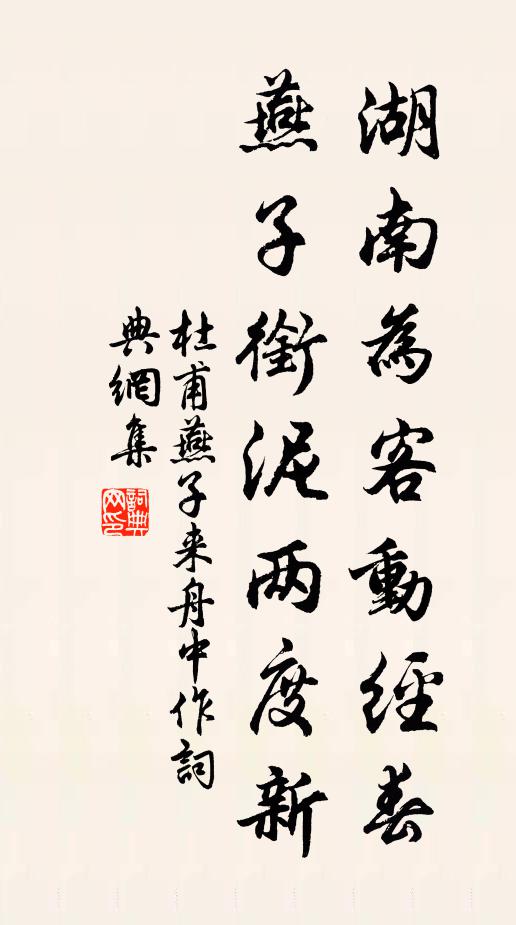 湖南為客動經春
燕子銜泥两度新
杜甫燕子来舟中作詞
典網集
詞典
网印